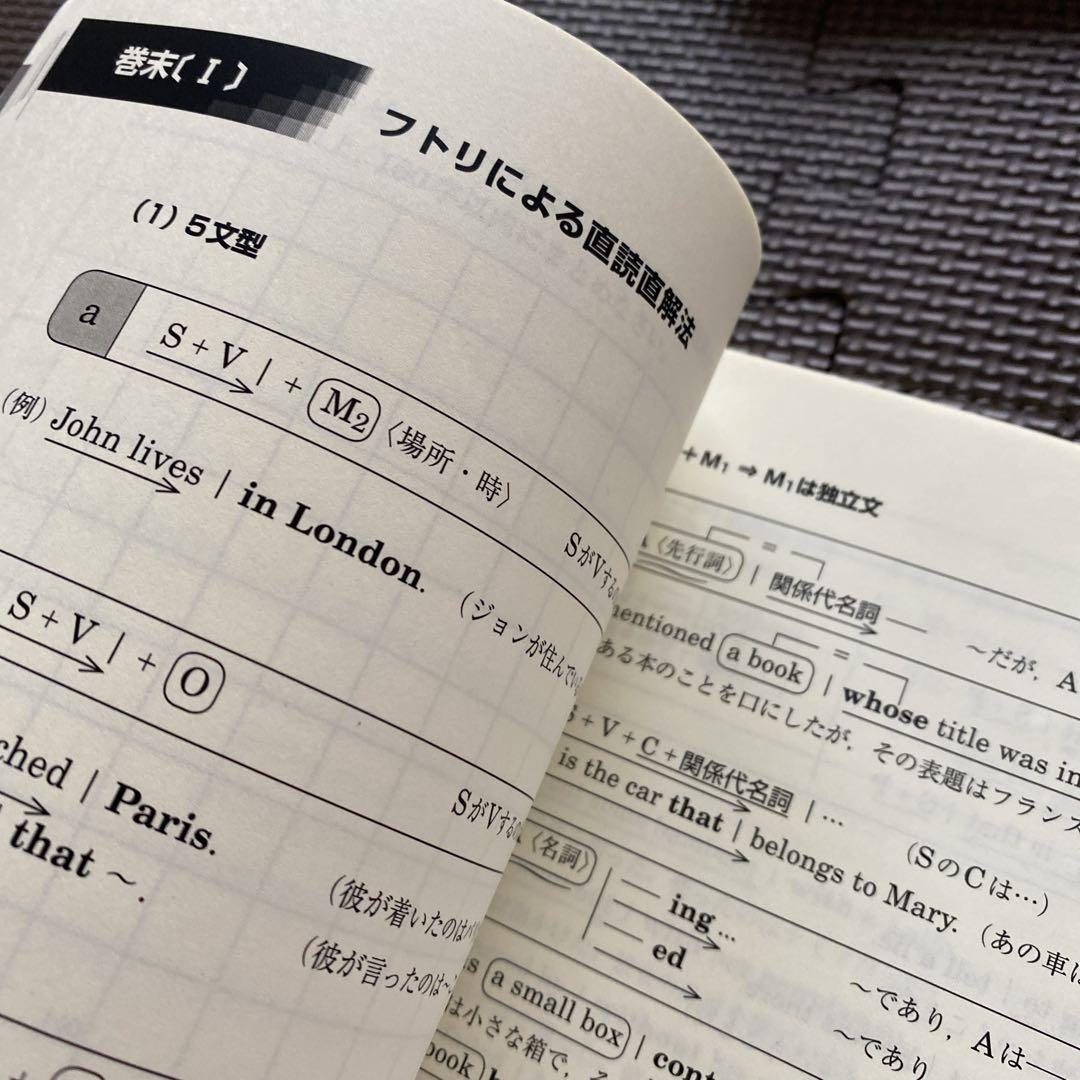 巻末〔Ⅰ〕
フトリによる直読直解法
(1) 5文型
a
S + V | + M2 〈場所・時〉
SがVするの
(例) John lives | in London.
(ジョンが住んでいる
S + V | + O
SがVするの
ched | Paris.
(彼が着いたのは
that ～.
(彼が言ったのは～
+M1 ⇒ M1は独立文
=
A〈先行詞〉 | 関係代名詞
～だが，A
mentioned a book | whose title was in
=
ある本のことを口にしたが，その表題はフランス
S + V + C + 関係代名詞 | …
(SのCは…)
is the car that | belongs to Mary.
(あの車は
〈名詞〉
ing…
ed
～であり，Aは
～であり
a small box | cont
は小さな箱で，そ
book